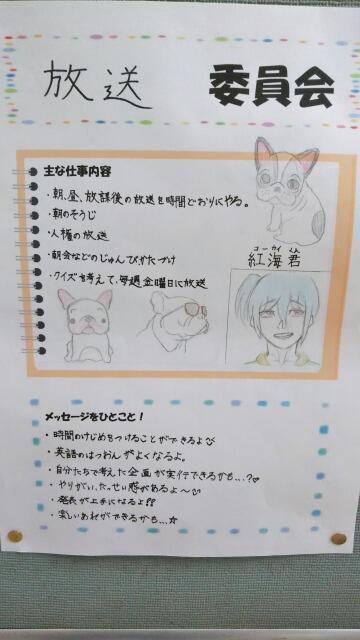 放送 委員会
主な仕事内容
・朝、昼、放課後の放送を時間どおりにやる。
・朝のそうじ
・人権の放送
・朝会などのじゅんびかたづけ
・クイズを考えて、毎週金曜日に放送
コーカイ くん
紅海君
メッセージをひとこと！
・時間のけじめをつけることができるよ♡
・英語のはつおんがよくなるよ。
・自分たちで考えた企画が実行できるかも…?♡
・やりがい、たっせい感があるよ〜♡
・発表が上手になるよ!?
・楽しいあれができるかも…☆